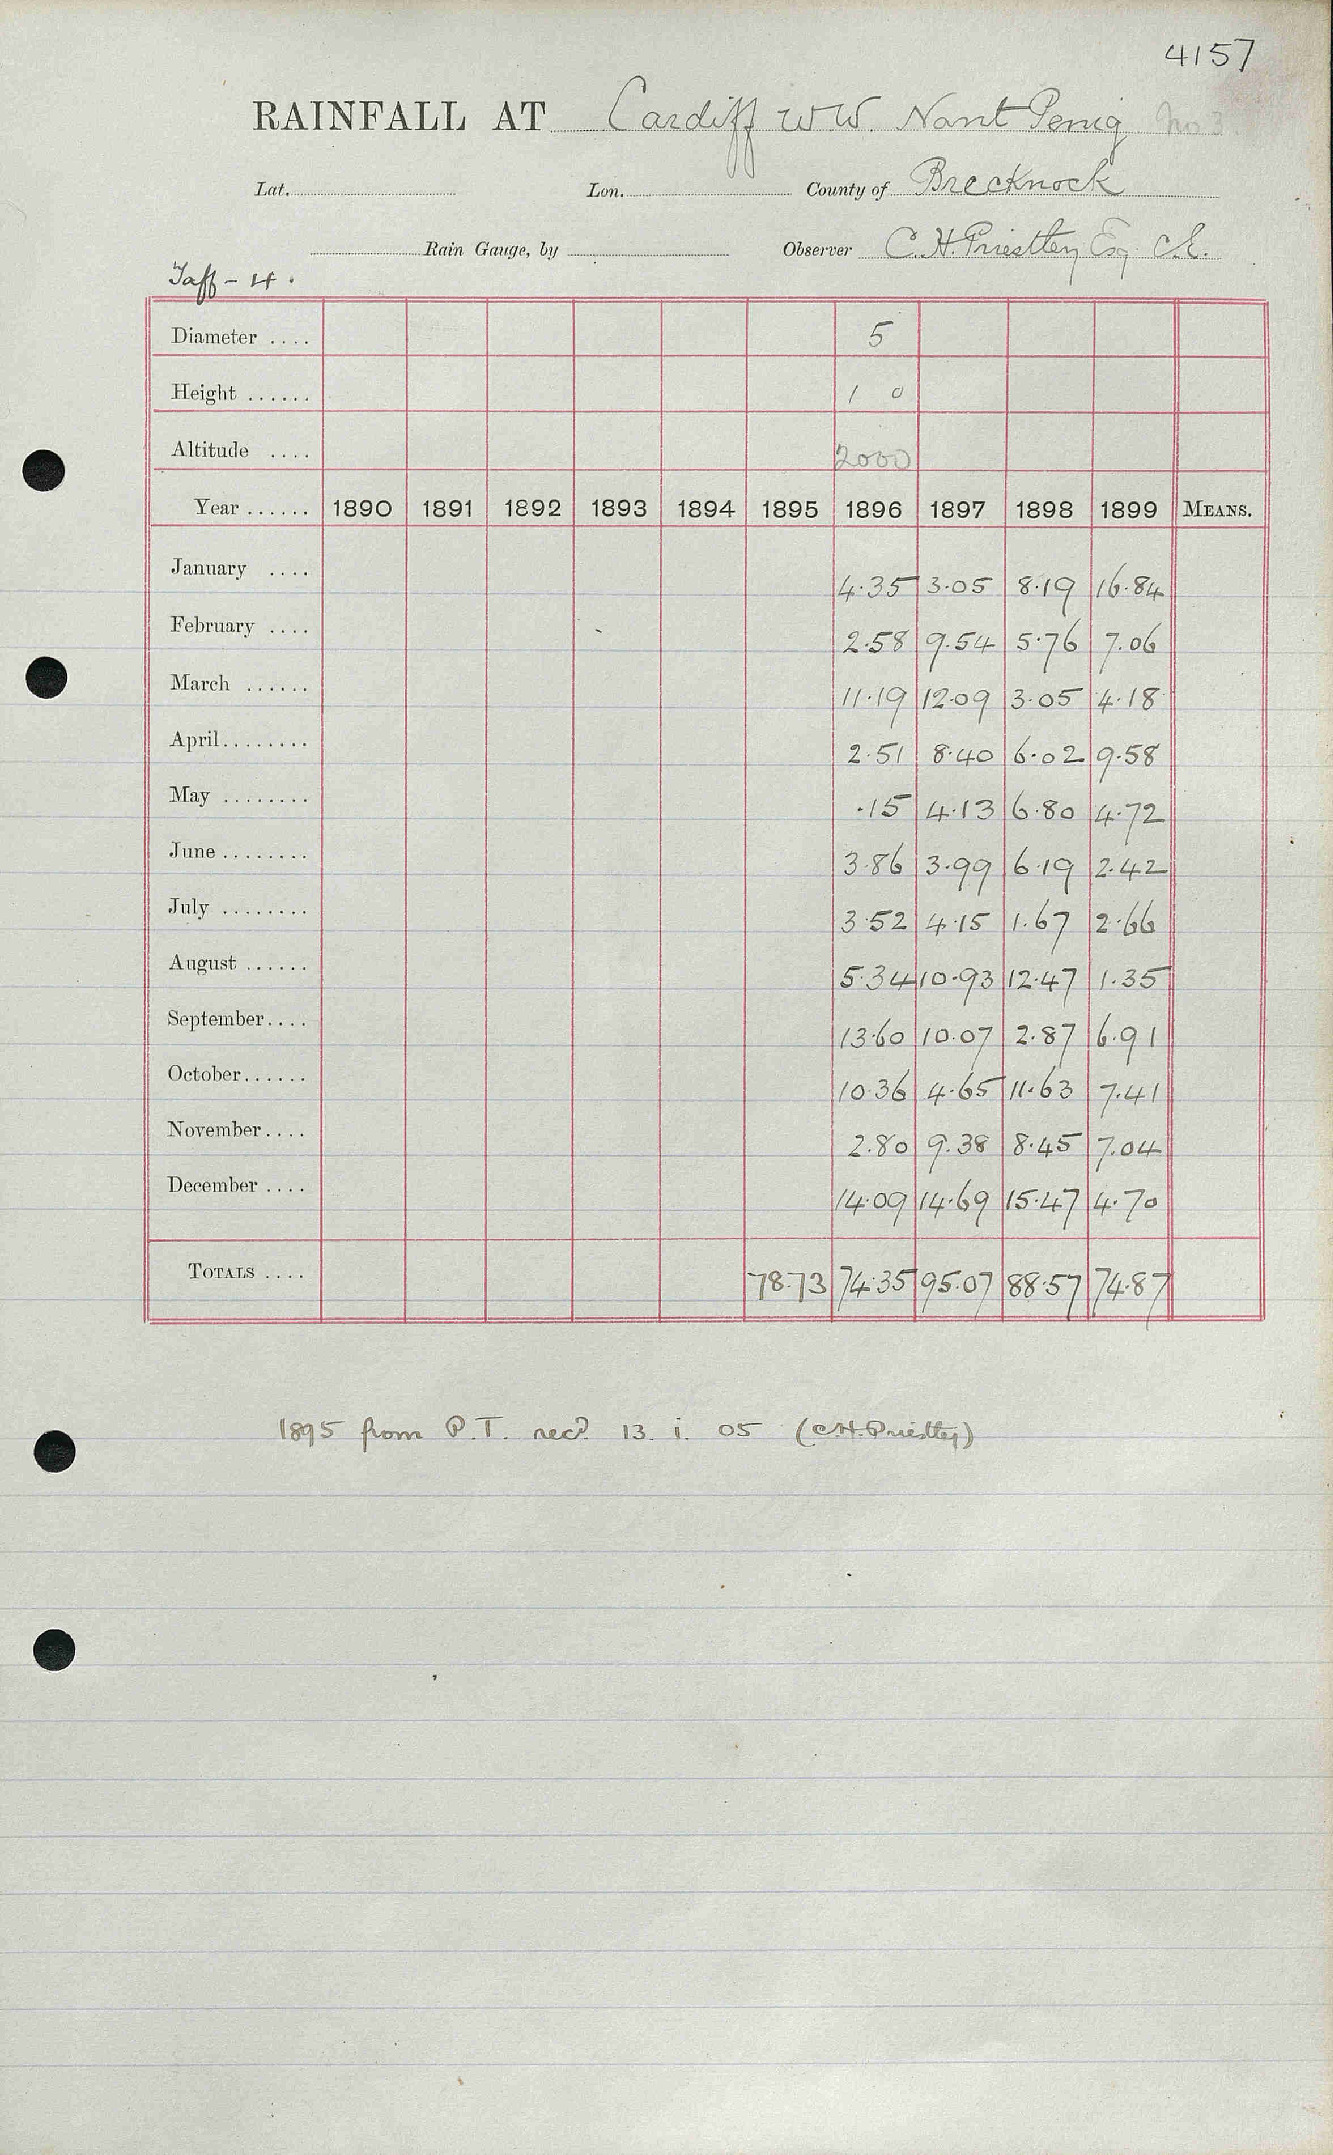 4157
RAINFALL AT Cardiff W.W. Nant Penig No 3.
Lat. Lon. County of Brecknock
Rain Gauge, by Observer C.H. Priestley Esq C.E.
Taff - 4.
Diameter .... 5
Height ...... 1 0
Altitude .... 2000
Year ...... 1890 1891 1892 1893 1894 1895 1896 1897 1898 1899 MEANS.
January .... 4.35 3.05 8.19 16.84
February .... 2.58 9.54 5.76 7.06
March ...... 11.19 12.09 3.05 4.18
April........ 2.51 8.40 6.02 9.58
May ........ .15 4.13 6.80 4.72
June ........ 3.86 3.99 6.19 2.42
July ........ 3.52 4.15 1.67 2.66
August ...... 5.34 10.93 12.47 1.35
September.... 13.60 10.07 2.87 6.91
October...... 10.36 4.65 11.63 7.41
November.... 2.80 9.38 8.45 7.04
December .... 14.09 14.69 15.47 4.70
TOTALS .... 78.73 74.35 95.07 88.57 74.87
1895 from P.T. recd. 13. i. 05 (C.H. Priestley)